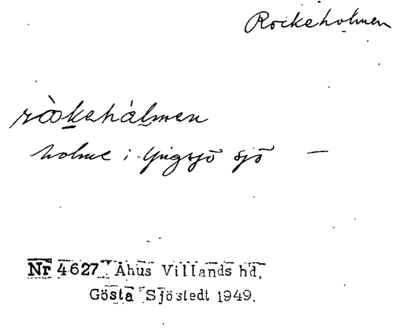 Rockeholmen
ròokehálmen
holme i Yngsjö sjö —
Nr 4627 Åhus Villands hd.
Gösta Sjöstedt 1949.